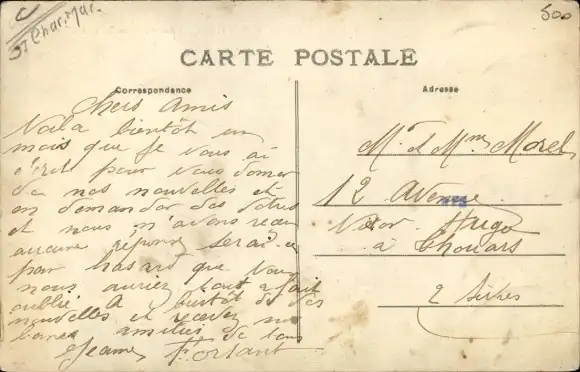 C
17 Char. Mar.
500
CARTE POSTALE
Correspondance
Adresse
Chers Amis
Voila bientôt un
mois que je vous ai
écrit pour vous donner
de nos nouvelles et
en demander des votres
et nous n'avons reçu
aucune réponse serai-ce
par hasard que vous
nous auriez tout a fait
oublié A bientôt de vos
nouvelles et recevez nos
bonnes amitiés de tous
Jeanne
Mr et Mme Morel
12 Avenue
Victor Hugo
à Thouars
2 Sèvres